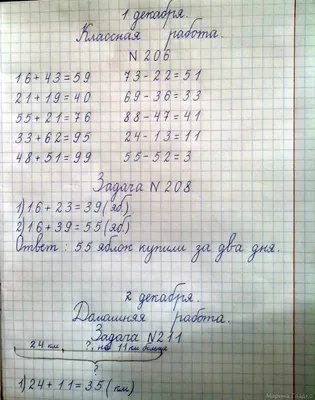 1 декабря.
Классная работа.
N 206
16+43=59 73-22=51
21+19=40 69-36=33
55+21=76 88-47=41
33+62=95 24-13=11
48+51=99 55-52=3
Задача N 208
1) 16+23=39 (яб.)
2) 16+39=55 (яб)
Ответ: 55 яблок купили за два дня.
2 декабря.
Домашняя работа.
Задача N 211
24 км ?, на 11 км больше
?
1) 24+11=35 (км)